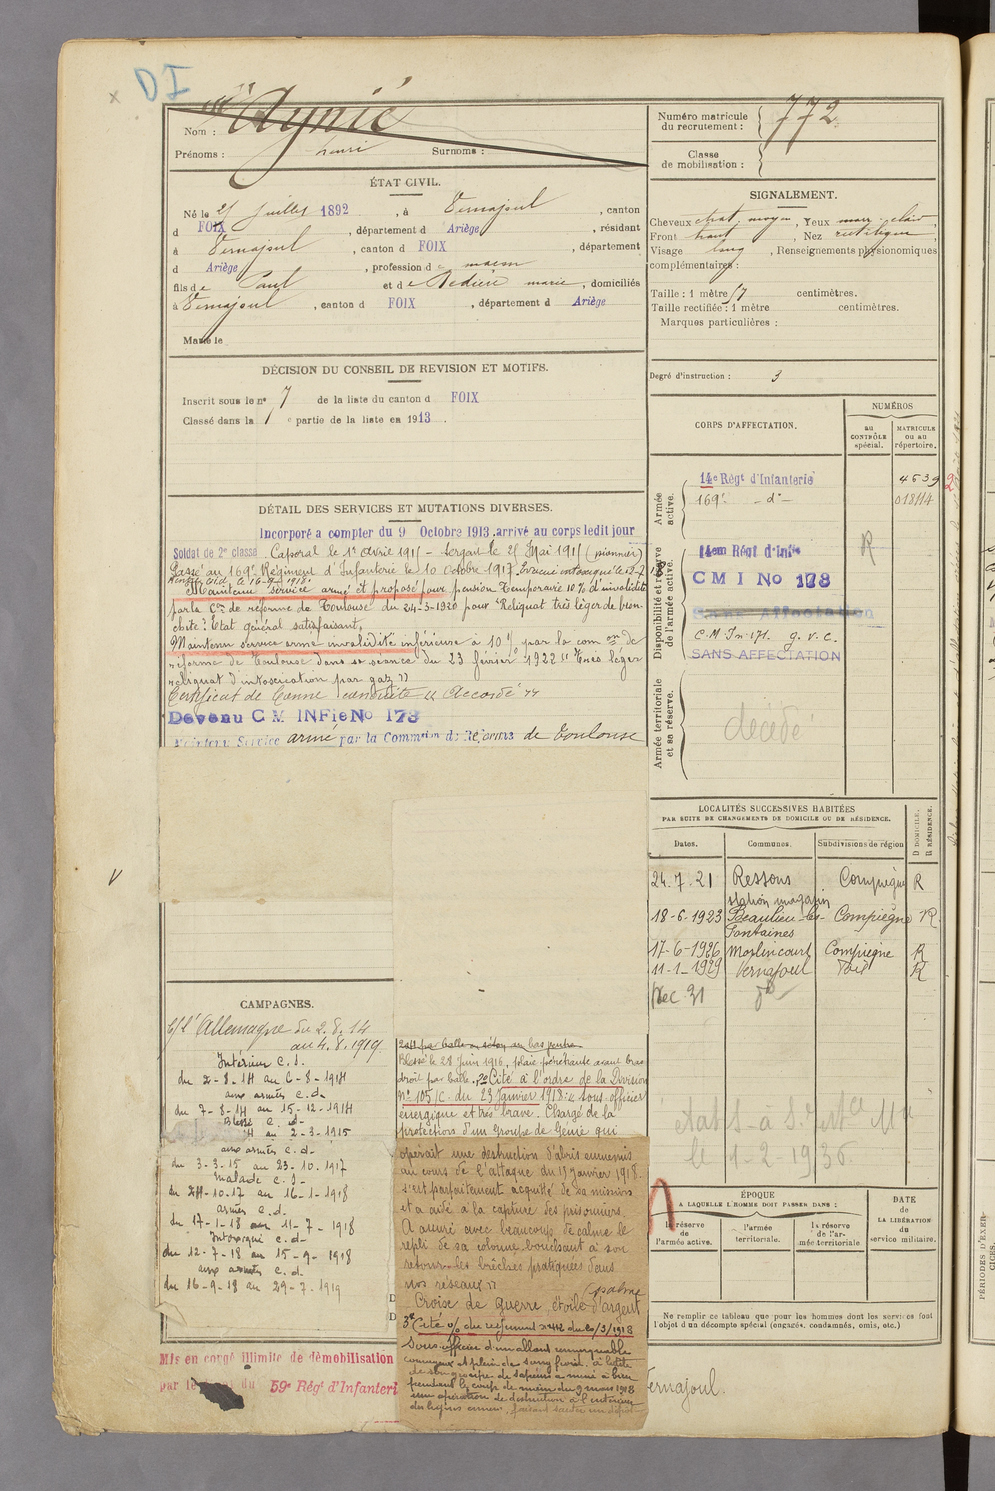 DI
Nom : Aynié
Prénoms : henri Surnoms :
Numéro matricule du recrutement : 772
Classe de mobilisation :
ÉTAT CIVIL.
Né le 25 Juillet 1892, à Vernajoul, canton
d FOIX, département d Ariège, résidant
à Vernajoul, canton d FOIX, département
d Ariège, profession d maçon
fils de Paul et de Dedieu marie, domiciliés
à Vernajoul, canton d FOIX, département d Ariège
Marié le
SIGNALEMENT.
Cheveux chat. moyen, Yeux marr. clair,
Front haut, Nez rectiligne,
Visage long, Renseignements physionomiques
complémentaires :
Taille : 1 mètre 57 centimètres.
Taille rectifiée : 1 mètre centimètres.
Marques particulières :
Degré d'instruction : 3
DÉCISION DU CONSEIL DE REVISION ET MOTIFS.
Inscrit sous le n° 7 de la liste du canton d FOIX
Classé dans la 1 e partie de la liste en 1913.
CORPS D'AFFECTATION.
NUMÉROS
au CONTRÔLE spécial.
MATRICULE ou au répertoire.
Armée active.
14e Régt d'Infanterie 4539
169e -d°- 018114
Disponibilité et réserve de l'armée active.
14em Régt d'Infie
R
CMI No 178
Sans Affectation
C.M. In. 171. G.V.C.
SANS AFFECTATION
Armée territoriale et sa réserve.
décédé
DÉTAIL DES SERVICES ET MUTATIONS DIVERSES.
Incorporé a compter du 9 Octobre 1913. arrivé au corps ledit jour
Soldat de 2e classe Caporal le 1er Avril 1915 - Sergent le 25 Mai 1915 (pionnier)
Passé au 169e Régiment d'Infanterie le 10 Octobre 1917. Evacué intoxiqué le 12-7-18
Rentré le 16-9-1918.
Maintenu service armé et proposé pour pension Temporaire 10% d'invalidité
par la Con de réforme de Toulouse du 24-3-1920 pour "Reliquat très léger de bron-
chite". Etat général satisfaisant.
Maintenu service armé invalidité inférieure à 10% par la com on de
réforme de Toulouse dans sa séance du 23 février 1922 "Très léger
reliquat d'intoxication par gaz"
Certificat de bonne conduite "Accordé"
Devenu CM INFie No 178
Maintenu Service armé par la Commion de Réforme de Toulouse
LOCALITÉS SUCCESSIVES HABITÉES
PAR SUITE DE CHANGEMENTS DE DOMICILE OU DE RÉSIDENCE.
Dates. Communes. Subdivisions de région D DOMICILE. R RÉSIDENCE.
24.7.21 Ressons station magasin Compiègne R
18-6-1923 Beaulieu-les-Fontaines Compiègne R
17-6-1926 Morlincourt Compiegne R
11-1-1929 Vernajoul Foix R
Dec 31
le 1-2-1936.
CAMPAGNES.
C/ l'Allemagne du 2.8.14
au 4.8.1919
Intérieur C.S.
du 2-8-14 au 6-8-1914
aux armées C.d.
du 7-8-14 au 15-12-1914
Blessé C. d-
14 au 2-3-1915
aux armées C.d-
du 3-3-15 au 23-10-1917
Malade C.S-
du 24-10-17 au 16-1-1918
armées C.d.
du 17-1-18 au 11-7-1918
Intoxiqué C.d-
du 12-7-18 au 15-9-1918
aux armées C.d.
du 16-9-18 au 29-7-1919
Blessé le 28 Juin 1916, plaie pénétrante avant bras
droit par balle. 2e Cité à l'ordre de la Division
n° 105/C. du 23 janvier 1918 : "Sous-officier
énergique et très brave. Chargé de la
protection d'un groupe de Génie qui
opérait une destruction d'abris ennemis
au cours de l'attaque du 13 janvier 1918.
s'est parfaitement acquitté de sa mission
et a aidé à la capture des prisonniers.
A assuré avec beaucoup de calme le
repli de sa colonne bouchant à son
retour les brèches pratiquées dans
nos réseaux"
Croix de guerre, étoile d'argent (palme
3e Cité o/ du régiment n° 412 du 20/3/1918
Sous-officier d'un allant remarquable
courageux et plein de sang froid. à la tête
de son groupe de sapeurs a mené à bien
pendant le coup de main du 9 mars 1918
une opération de destruction à l'intérieur
des lignes ennem. faisant sauter un dépôt
ÉPOQUE
A LAQUELLE L'HOMME DOIT PASSER DANS :
la réserve de l'armée active.
l'armée territoriale.
la réserve de l'armée territoriale
DATE de LA LIBÉRATION du service militaire.
Ne remplir ce tableau que pour les hommes dont les services font
l'objet d'un décompte spécial (engagés, condamnés, omis, etc.)
Mis en congé illimité de démobilisation
par le du 59e Régt d'Infanteri
Vernajoul.
PÉRIODES D'EXERCICES.